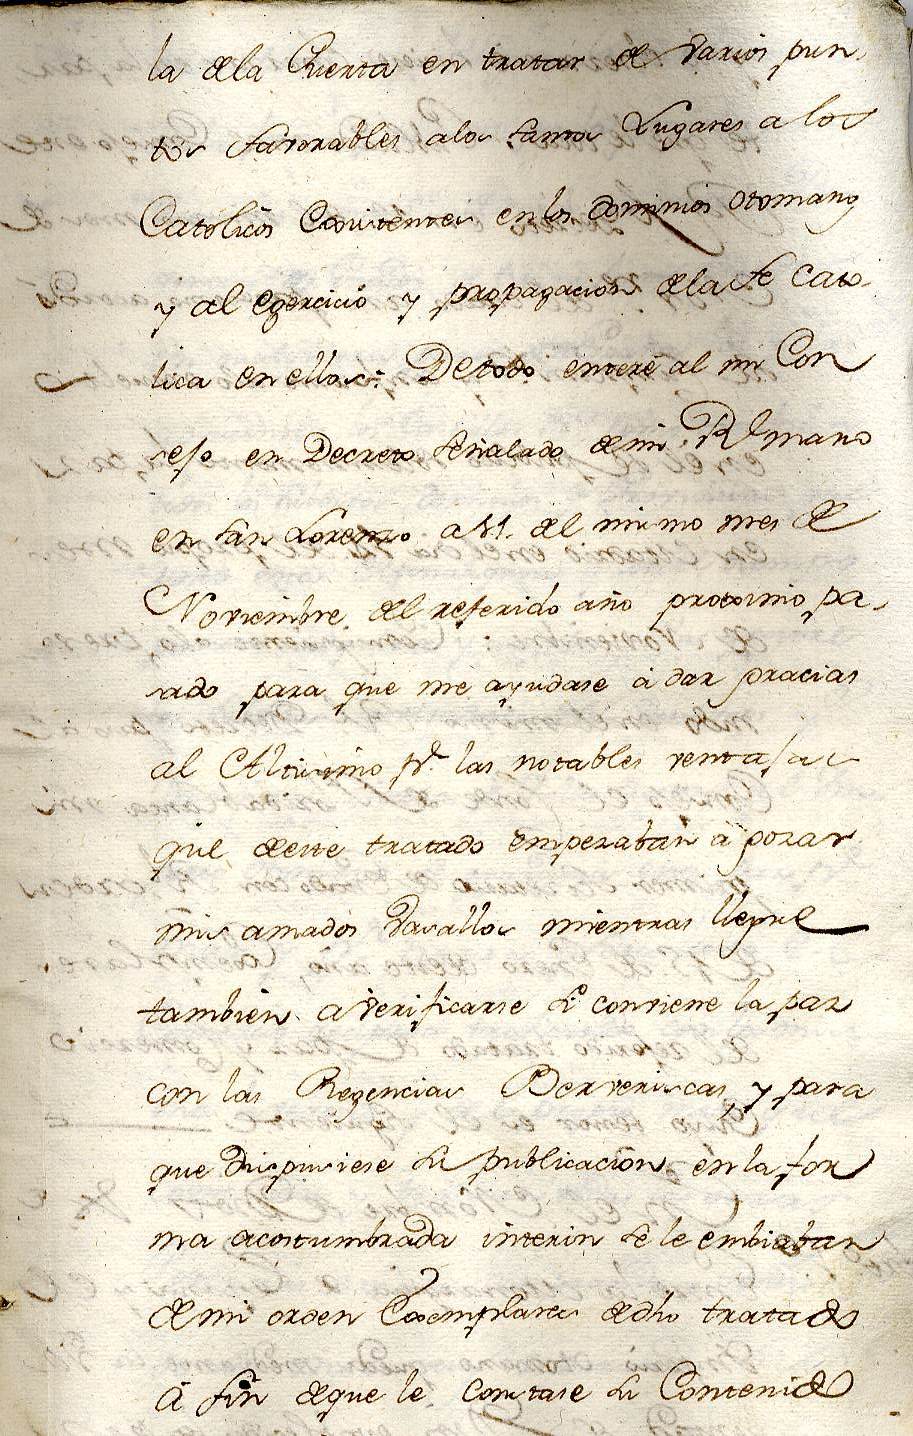 la dela Puerta en tratar de varios pun-
tos favorables alos santos Lugares a los
Catolicos Existentes en los dominios Otomanos
y al egercicio y propagacion dela fe Cato-
lica en ellos: Detodo enteré al mi Con
sejo en Decreto señalado demi Rl mano
en San Lorenzo a 21. del mismo mes de
Noviembre del referido año proximo pa-
sado para que me ayudase á dar gracias
al Altissimo pr. las notables ventajas
que deste tratado empezaban á gozar
mis amados Vasallos mientras llegue
tambien a verificarse si conviene la paz
con las Regencias Berveriscas, y para
que dispusiese su publicacion en la for
ma acostumbrada interin se le embiaban
demi orden Exemplares dedho tratado
á fin deque le constase su Contenido